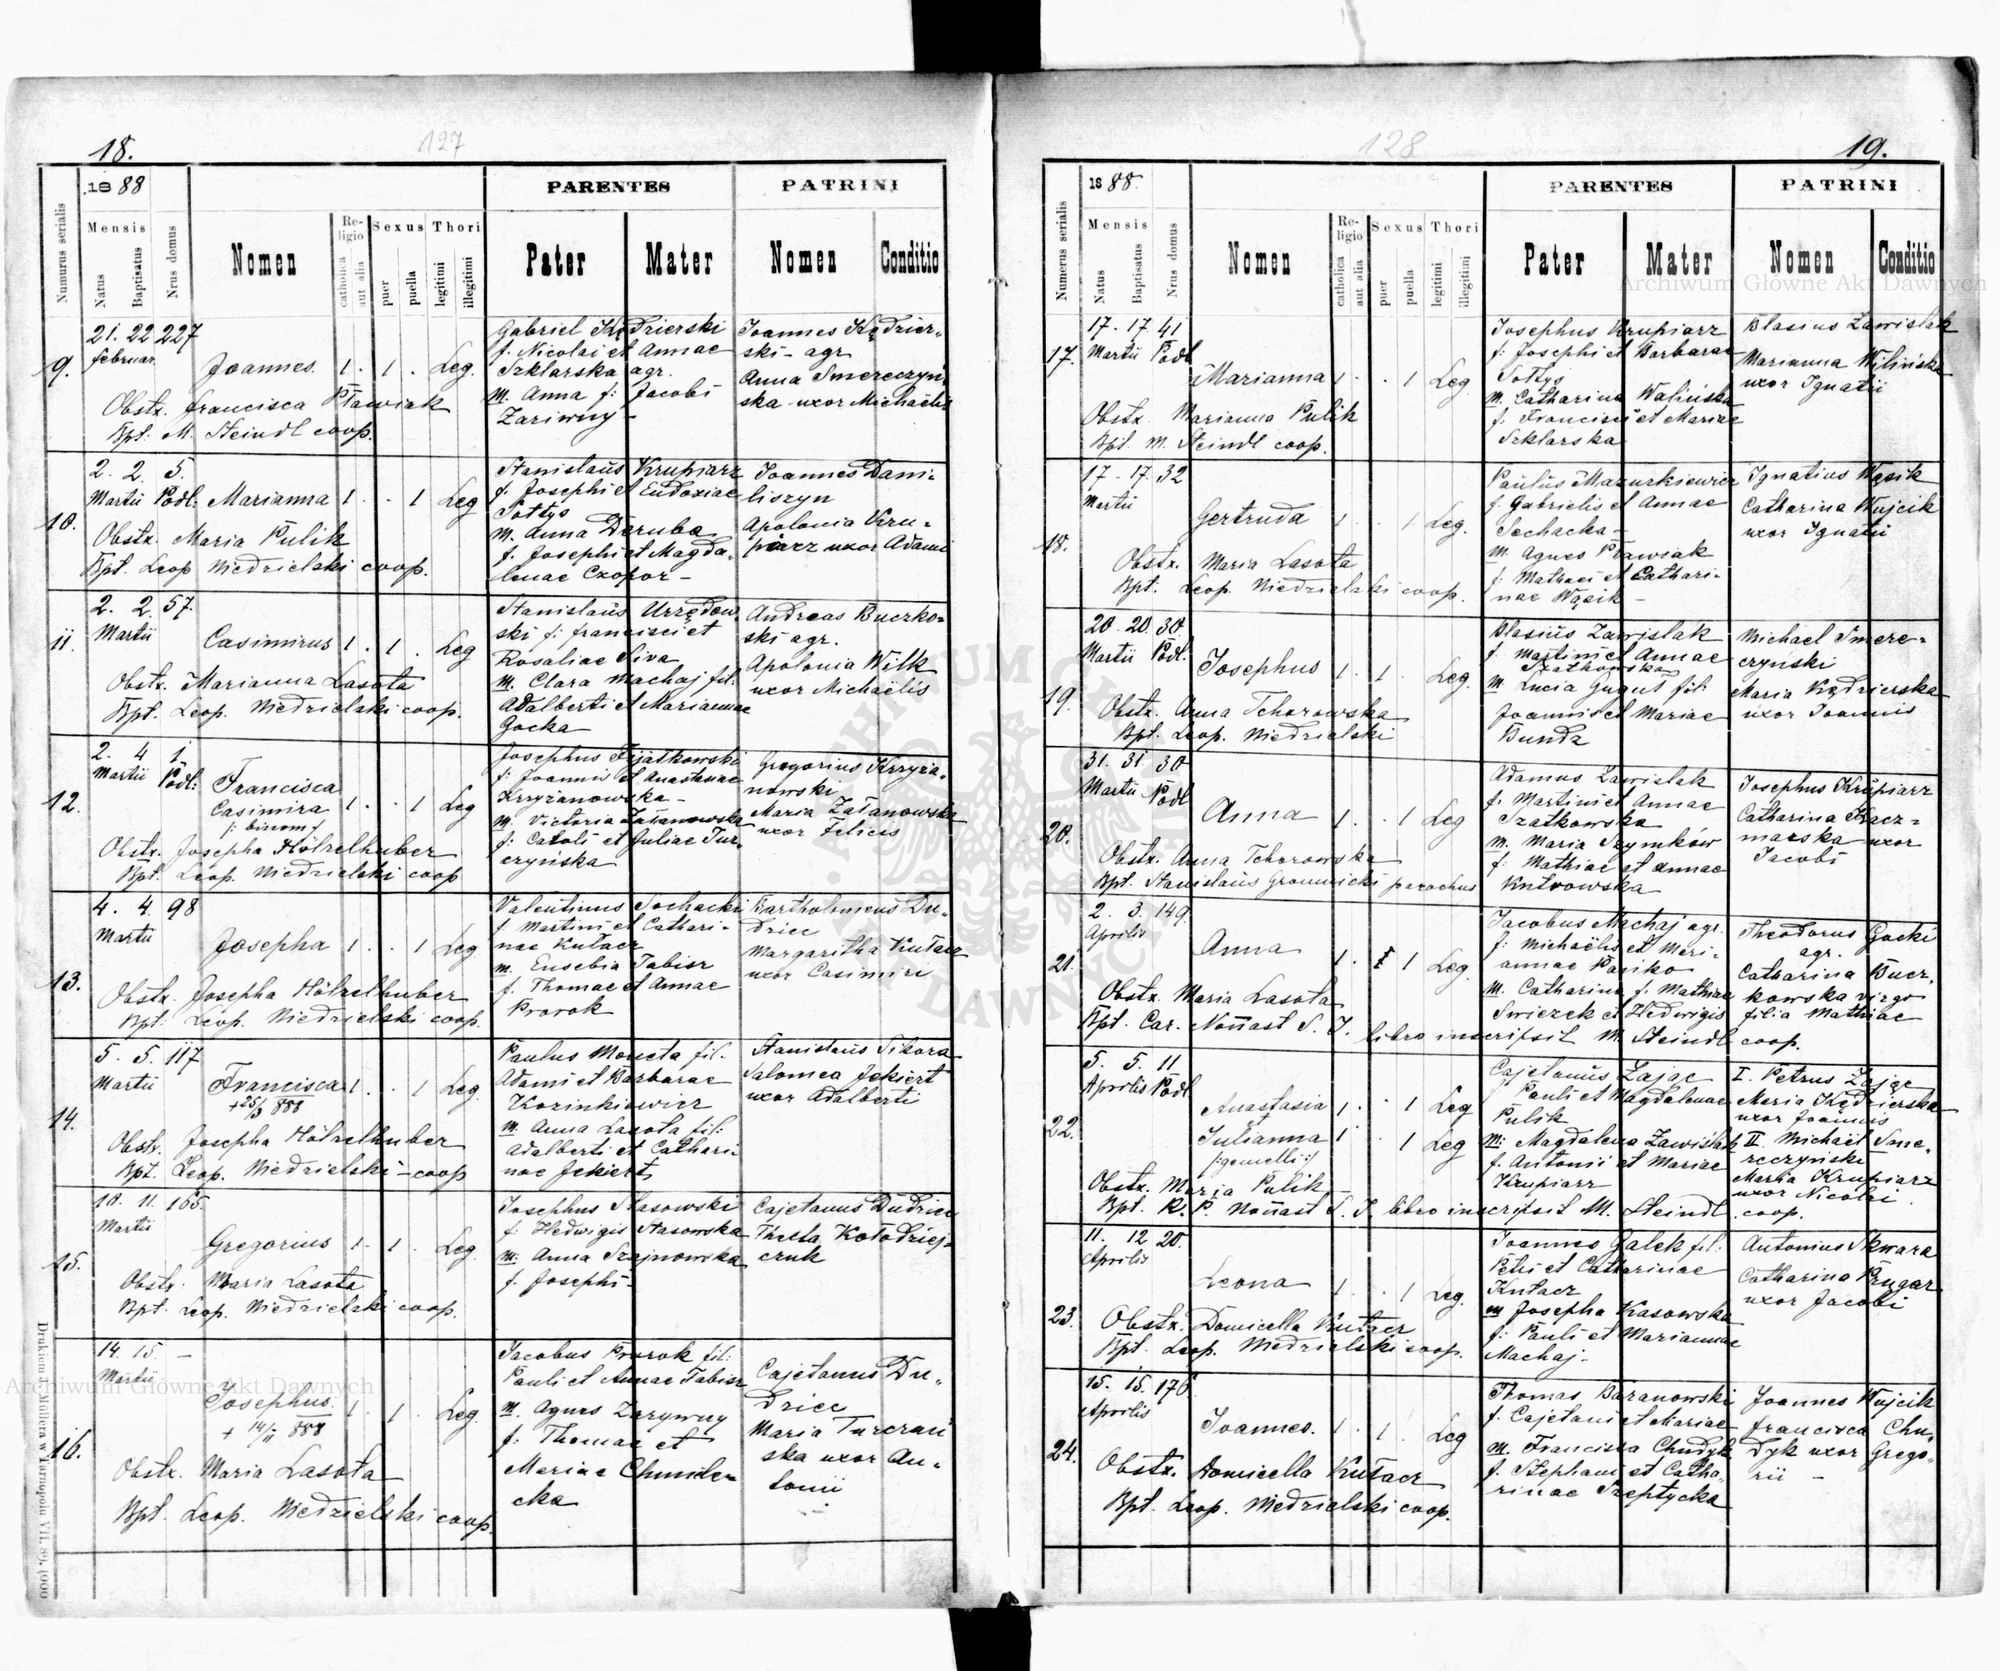 18. 127
1888
PARENTES PATRINI
Numerus serialis
Mensis
Natus Baptisatus Nrus domus
Nomen
Religio
catholica aut alia
Sexus
puer puella
Thori
legitimi illegitimi
Pater Mater Nomen Conditio
9.
21. 22 227
februar.
Joannes. 1 . 1 . Leg.
Obstx. Francisca Pławiak
Bpt: M. Steindl coop.
Gabriel Kędzierski
f. Nicolai et Annae
Szklarska agr.
M. Anna f: Jacobi
Zariwny
Joannes Kędzier-
ski - agr
Anna Smereczyń-
ska uxor Michaëlis
10.
2. 2. 5.
Martii Podl. Marianna 1 . . 1 Leg
Obstx. Maria Pulik
Bpt. Leop Niedzielski coop.
Stanislaus Krupiarz
f. Josephi et Eudoxiae
Sołtys
M. Anna Deruba
f. Josephi et Magda-
lenae Czopor -
Joannes Dani-
liszyn
Apolonia Kru-
piarz uxor Adami
11.
2. 2. 57.
Martii
Casimirus 1 . 1 . Leg
Obstx. Marianna Lasota
Bpt. Leop. Niedzielski coop.
Stanislaus Urzędow-
ski f: francisci et
Rosaliae Siva
M. Clara Machaj fil:
Adalberti et Mariannae
Gocka
Andreas Buczko-
ski agr.
Apolonia Wilk
uxor Michaëlis
12.
2. 4 1.
Martii Podl:
Francisca
Casimira 1 . . 1 Leg
/: binom /
Obstx. Josepha Hölzelhuber
Bpt. Leop. Niedzielski coop
Josephus Fijałkowski
f: Joannis et Anastasiae
Krzyżanowska -
M. Victoria Załanowska
f: Caroli et Juliae Tur-
czyńska
Gregorius Krzyża-
nowski
Maria Załanowska
uxor Felicis
13.
4. 4. 98
Martii
Josepha 1 . . 1 Leg
Obstx. Josepha Hölzelhuber
Bpt: Leop. Niedzielski coop.
Valentinus Sochacki
f Martini et Cathari-
nae Kułacz
M. Eusebia Tabisz
f. Thomae et Annae
Prorok
Bartholomeus Du-
dzicc
Margaritha Kułacz
uxor Casimiri
14.
5. 5. 117
Martii
Francisca 1 . . 1 Leg.
+ 25/3 888
Obstx. Josepha Hölzelhuber
Bpt. Leop. Niedzielski - coop
Paulus Moneta fil.
Adami et Barbarae
Kozinkiewicz
M. Anna Lasota fil:
Adalberti et Cathari-
nae Jekiert
Stanislaus Sikora
Salomea Jekiert
uxor Adalberti
15.
10. 11. 165.
Martii
Gregorius 1 . 1 . Leg.
Obstx. Maria Lasota
Bpt. Leop. Niedzielski coop.
Josephus Stasowski
f. Hedwigis Stasowska
M: Anna Szajnowska
f. Josephi -
Cajetanus Dudzicc
Thecla Kołodziej-
czuk
16.
14. 15. -
Martii
Josephus. 1 . 1 . Leg.
+ 14/11 888
Obstx. Maria Lasota
Bpt. Leop. Niedzielski coop.
Jacobus Prorok fil:
Pauli et Annae Tabisz
M. Agnes Zarywny
f: Thomae et
Mariae Chmiele-
cka
Cajetanus Du-
dzicc
Maria Turczań-
ska uxor An-
tonii
128 19.
1888.
PARENTES PATRINI
Numerus serialis
Mensis
Natus Baptisatus Nrus domus
Nomen
Religio
catholica aut alia
Sexus
puer puella
Thori
legitimi illegitimi
Pater Mater Nomen Conditio
17.
17. 17. 41
Martii Podl
Marianna 1 . . 1 Leg
Obstx. Marianna Pulik
Bpt. M. Steindl coop.
Josephus Krupiarz
f: Josephi et Barbarae
Sołtys
M. Catharina Walińska
f: Francisci et Mariae
Szklarska
Blasius Zawislak
Marianna Wilińska
uxor Ignatii
18.
17. 17. 32
Martii
Gertruda 1 . . 1 Leg.
Obstx. Maria Lasota
Bpt. Leop. Niedzielski coop.
Paulus Mazurkiewicz
f. Gabrielis et Annae
Sochacka -
M. Agnes Pławiak
f: Mathaei et Cathari-
nae Wąsik -
Ignatius Wąsik
Catharina Wujcik
uxor Ignatii
19.
20. 20. 30.
Martii Podl.
Josephus 1 . 1 . Leg.
Obstx. Anna Tchorowska
Bpt. Leop. Niedzielski
Blasius Zawislak
f. Martini et Annae
Szatkowska
M. Lucia Guguł fil:
Joannis et Mariae
Bundz
Michael Smere-
czynski
Maria Kędzierska
uxor Joannis
20.
31. 31. 30
Martii Podl
Anna 1 . . 1 Leg
Obstx. Anna Tchorowska
Bpt. Stanislaus Gromnicki parochus
Adamus Zawislak
f. Martini et Annae
Szatkowska
M. Maria Szymków
f: Mathiae et Annae
Kutrowska
Josephus Krupiarz
Catharina Kacz-
marska uxor
Jacobi
21.
2. 3. 149.
Aprilis
Anna 1 . . 1 Leg.
Obstx. Maria Lasota
Bpt. Car. Nonnast S. J. libro inscripsit M. Steindl coop.
Jacobus Machaj agr.
f: Michaëlis et Mari-
annae Paniko
M. Catharina f. Mathiae
Swiczek et Hedwigis
Theodorus Gocki
agr.
Catharina Bucz-
kowska virgo
filia Mathiae
22.
5. 5. 11
Aprilis Podl.
Anastasia 1 . . 1 Leg
et
Julianna 1 . . 1 Leg
/: gemelli :/
Obstx. Maria Pulik
Bpt. R. P. Nonnast S. J. libro inscripsit M. Steindl coop.
Cajetanus Zając
f Pauli et Magdalenae
Pulik
M: Magdalena Zawiślak
f. Antonii et Mariae
Krupiarz
I. Petrus Zając
Maria Kędzierska
uxor Joannis
II. Michaël Sme-
reczyński
Maria Krupiarz
uxor Nicolai
23.
11. 12 20.
Aprilis
Leona 1 . . 1 Leg.
Obstx. Domicella Kułacz
Bpt. Leop. Niedzielski coop.
Joannes Galek fil:
Petri et Catharinae
Kułacz
M Josepha Kasowska
f: Pauli et Mariannae
Machaj -
Antonius Skwara
Catharina Prugar
uxor Jacobi
24.
15. 15. 176
Aprilis
Joannes. 1 . 1 . Leg
Obstx. Domicella Kułacz
Bpt. Leop. Niedzielski coop.
Thomas Baranowski
f. Cajetani et Mariae
M. Francisca Chudyk
f. Stephani et Catha-
rinae Szeptycka
Joannes Wujcik
francisca Chu-
dyk uxor Grego-
rii -
Archiwum Główne Akt Dawnych
Archiwum Główne Akt Dawnych